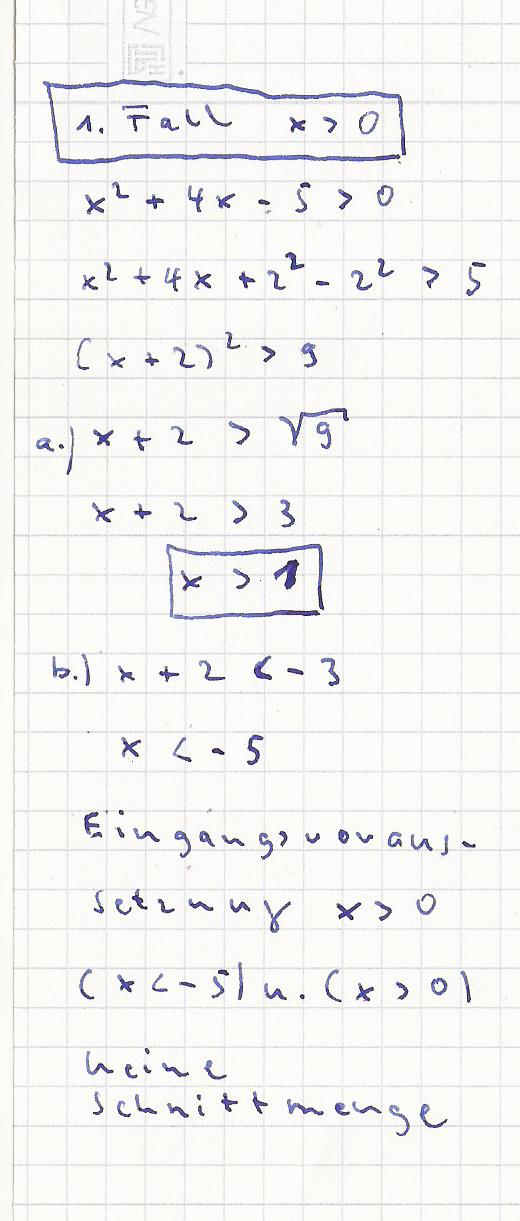 1. Fall x > 0
x² + 4x - 5 > 0
x² + 4x + 2² - 2² > 5
(x + 2)² > 9
a.) x + 2 > √9
x + 2 > 3
x > 1
b.) x + 2 < - 3
x < - 5
Eingangsvoraus-
setzung x > 0
(x < - 5) u. (x > 0)
keine
Schnittmenge